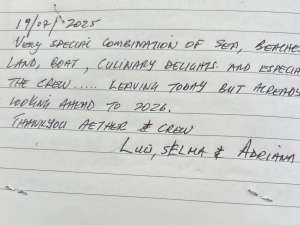 19/07/2025
VERY SPECIAL COMBINATION OF SEA, BEACHES
LAND, BOAT, CULINARY DELIGHTS AND ESPECIA
THE CREW..... LEAVING TODAY BUT ALREADY
LOOKING AHEAD TO 2026.
THANKYOU AETHER & CREW
LUÚ, SELMA & ADRIANA